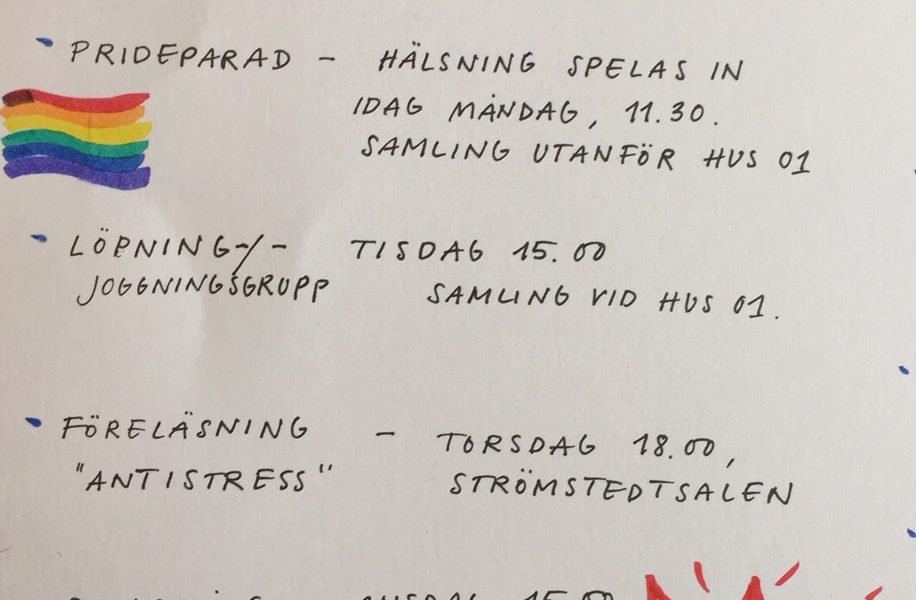 PRIDEPARAD - HÄLSNING SPELAS IN
IDAG MÅNDAG, 11.30.
SAMLING UTANFÖR HUS 01
LÖPNING-/- TISDAG 15.00
JOGGNINGSGRUPP SAMLING VID HUS 01.
FÖRELÄSNING - TORSDAG 18.00,
"ANTISTRESS" STRÖMSTEDTSALEN